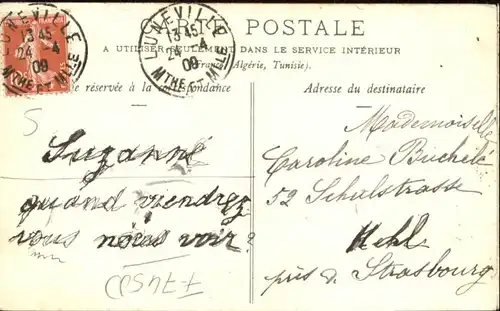 CARTE POSTALE
A UTILISER SEULEMENT DANS LE SERVICE INTÉRIEUR
(France, Algérie, Tunisie).
LUNEVILLE
13 45
24 -4
09
MTHE ET MLLE
LUNEVILLE
13 45
24
09
MTHE ET MLLE
réservée à la correspondance
Adresse du destinataire
5
Suzanne
quand viendrez
vous nous voir?
Mademoiselle
Caroline Buchelé
52 Schulstrasse
Kehl
près de Strasbourg